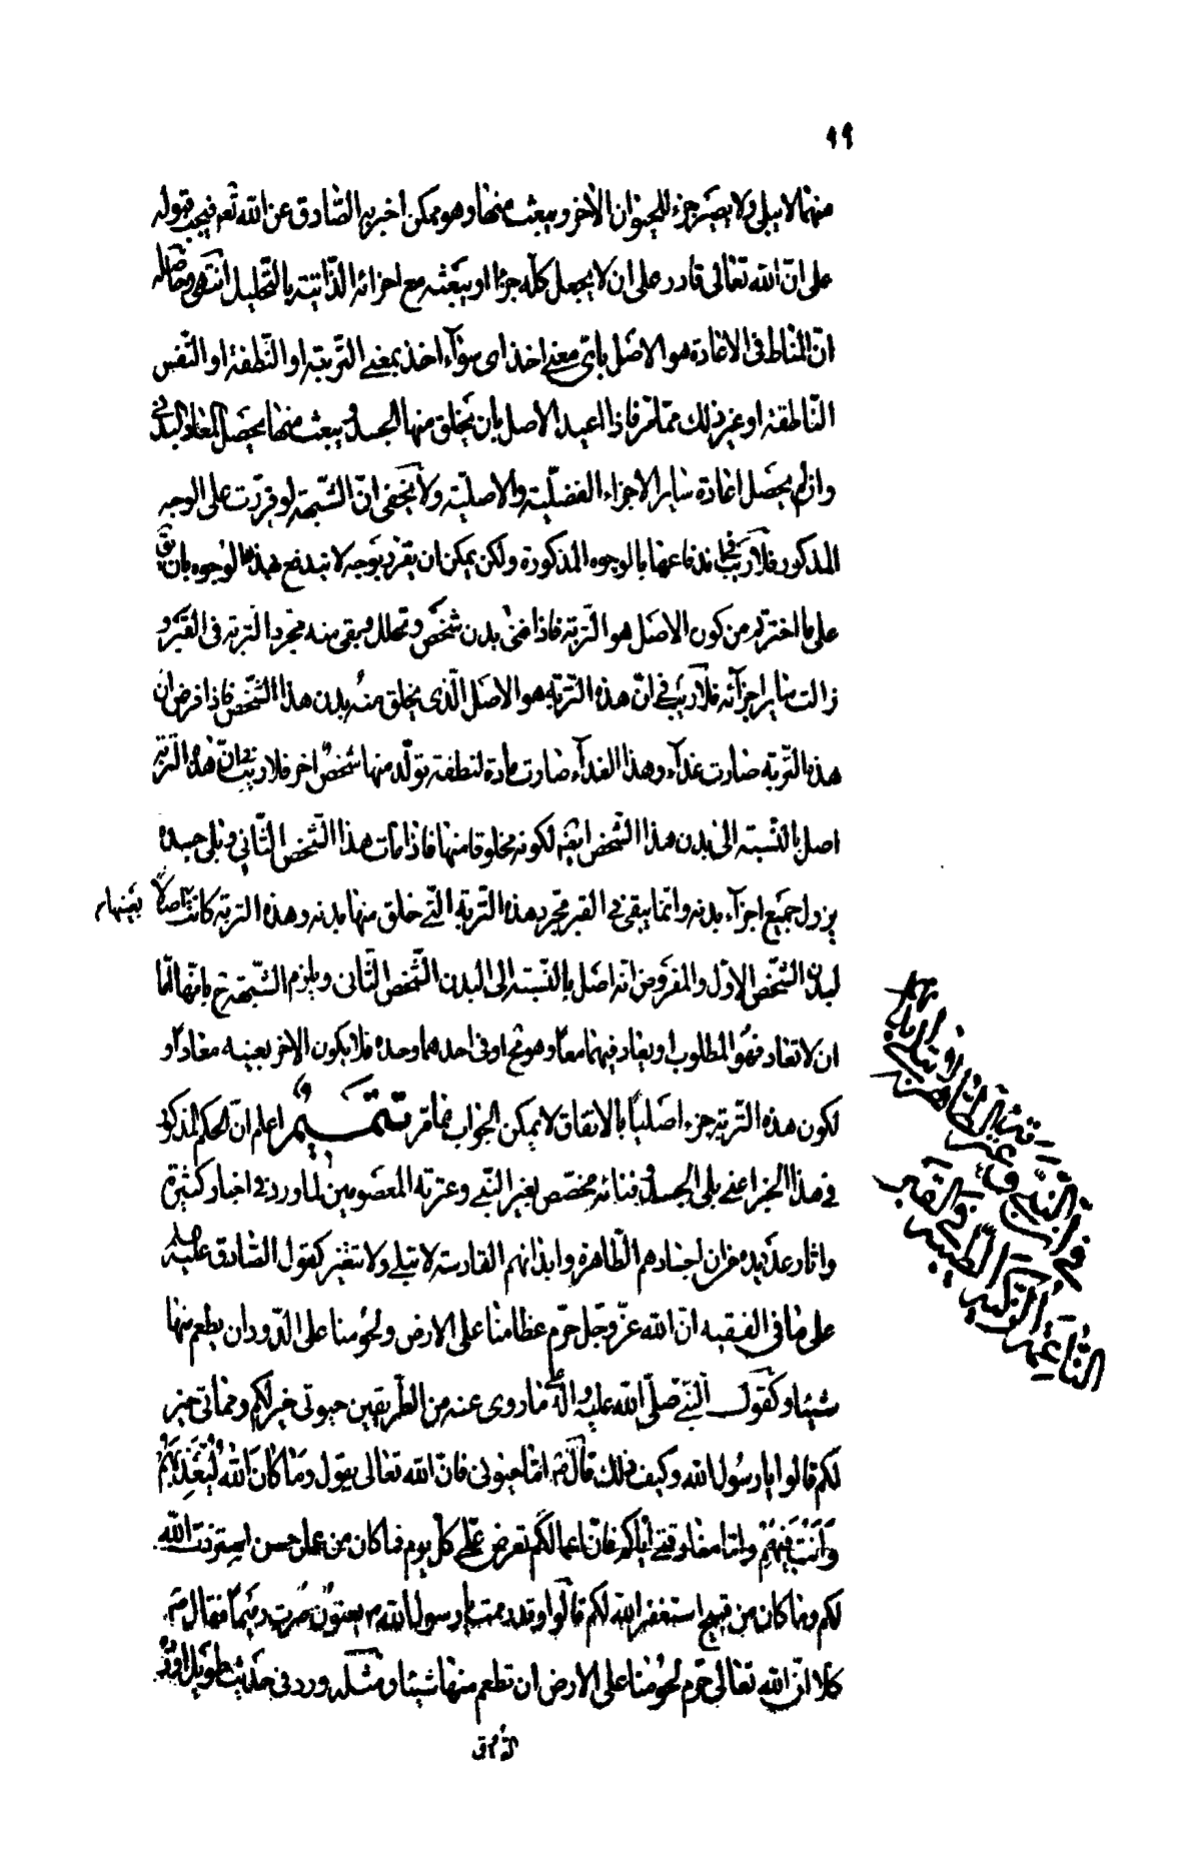 ٩٩
منهما لا يبلى ولا يصير جزء للحيوان الآخر ويبعث منها وهو ممكن اخبر به الصّادق عن اللّه تعم فيجب قبوله
على انّ اللّه تعالى قادر على ان لا يجعل كلّه جزءا او يبعثه مع اجزائه الذّاتيّة بالتّحليل انتهى وحاصله
انّ المناط فى الاعادة هو الاصل باىّ معنى اخذ اى سوآء اخذ بمعنى التّربة او النّطفة او النّفس
النّاطقة او غير ذلك ممّا مرّ فاذا اعيد الاصل بان يخلق منها الجسد ويبعث منها يحصل المعاد البدنى
وان لم يحصل اعادة ساير الاجزاء الفضليّة والاصليّة ولا يخفى انّ الشّبهة لو قرّرت على الوجه
المذكور فلا ريب فى اندفاعها بالوجوه المذكورة ولكن يمكن ان يقرّر بوجه لا يندفع بهذه الوجوه بان يق
على ما اخترتم من كون الاصل هو التّربة فاذا فنى بدن شخص وتحلل وبقى منه مجرد التربة فى القبر و
زالت ساير اجزآئه فلا ريب فى انّ هذه التّربة هو الاصل الّذى يخلق منه بدن هذا الشّخص فاذا فرض ان
هذه التّربة صارت غذآء وهذا الغذآء صارت مادة لنطفة تولّد منها شخص اخر فلا ريب فى انّ هذه التّربة
اصل بالنّسبة الى بدن هذا الشّخص ايضا لكونه مخلوقا منها فاذا مات هذا الشّخص الثّانى وبلى جسده
يزول جميع اجزآء بدنه وانّما يبقى فى القبر مجرّد هذه التّربة الّتى خلق منها بدنه وهذه التربة كانت اصلا
بعينها
لبدن الشّخص الاوّل والمفروض انّه اصل بالنّسبة الى البدن الشّخص الثّانى ويلزم الشّبهة ح بانّها امّا
ان لا تعاد فهو المطلوب او يعاد فيهما معا وهو مح او فى احدهما وحده فلا يكون الاخر بعينه معادا و
لكون هذه التّربة جزء اصليّا بالاتفاق لا يمكن الجواب بما مرّ تتميم اعلم انّ الحكم المذكور
فى هذا الخبر اعنى بلى الجسد وفنائه مختص بغير النّبى وعترته المعصومين لما ورد فى اخبار كثيرة
واثار عديده من ان اجسادهم الطّاهرة وابدانهم القادسة لا تبلى ولا تتغير كقول الصّادق عليه السلم
على ما فى الفقيه انّ اللّه عزّ وجلّ حرّم عظامنا على الارض ولحومنا على الدّود ان يطعم منها
شيئا وكقول النّبى صلّى اللّه عليه واله فيما روى عنه من الطّريقين حيوتى خير لكم ومماتى خير
لكم قالوا يا رسول اللّه وكيف ذلك قال ص امّا حيوتى فانّ اللّه تعالى يقول وَمَا كَانَ اللّهُ لِيُعَذِّبَهُمْ
وَأَنْتَ فِيهِمْ وامّا مفارقتى ايّاكم فانّ اعمالكم تعرض علىّ كلّ يوم فما كان من عمل حسن استزدت اللّه
لكم وما كان من قبيح استغفر اللّه لكم قالوا وقد رممت يا رسول اللّه ص يعنون صرت رميما فقال ص
كلا انّ اللّه تعالى حرّم لحومنا على الارض ان تطعم منها شيئا ومثله ورد فى حديث طويل